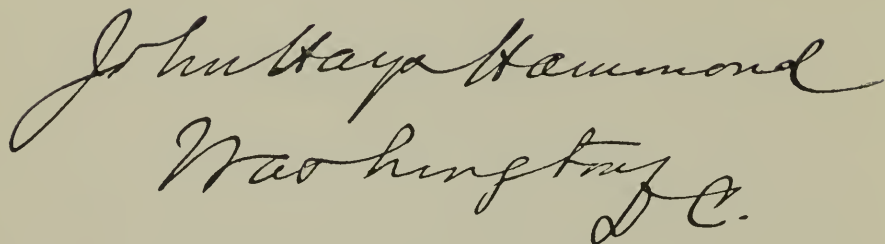 John Hays Hammond
Washington,
D C.